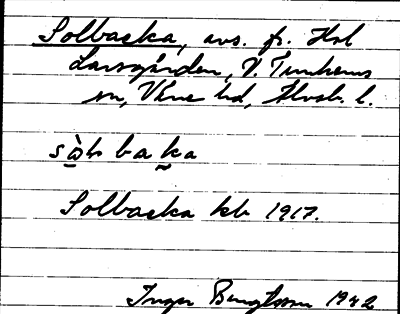 Solbacka, avs. fr. Hol
Larsgården, V. Tunhems
sn, Väne hd, Älvsb. l.
sὼlbaka
Solbacka kb 1917.
Inger Bengtsson 1942